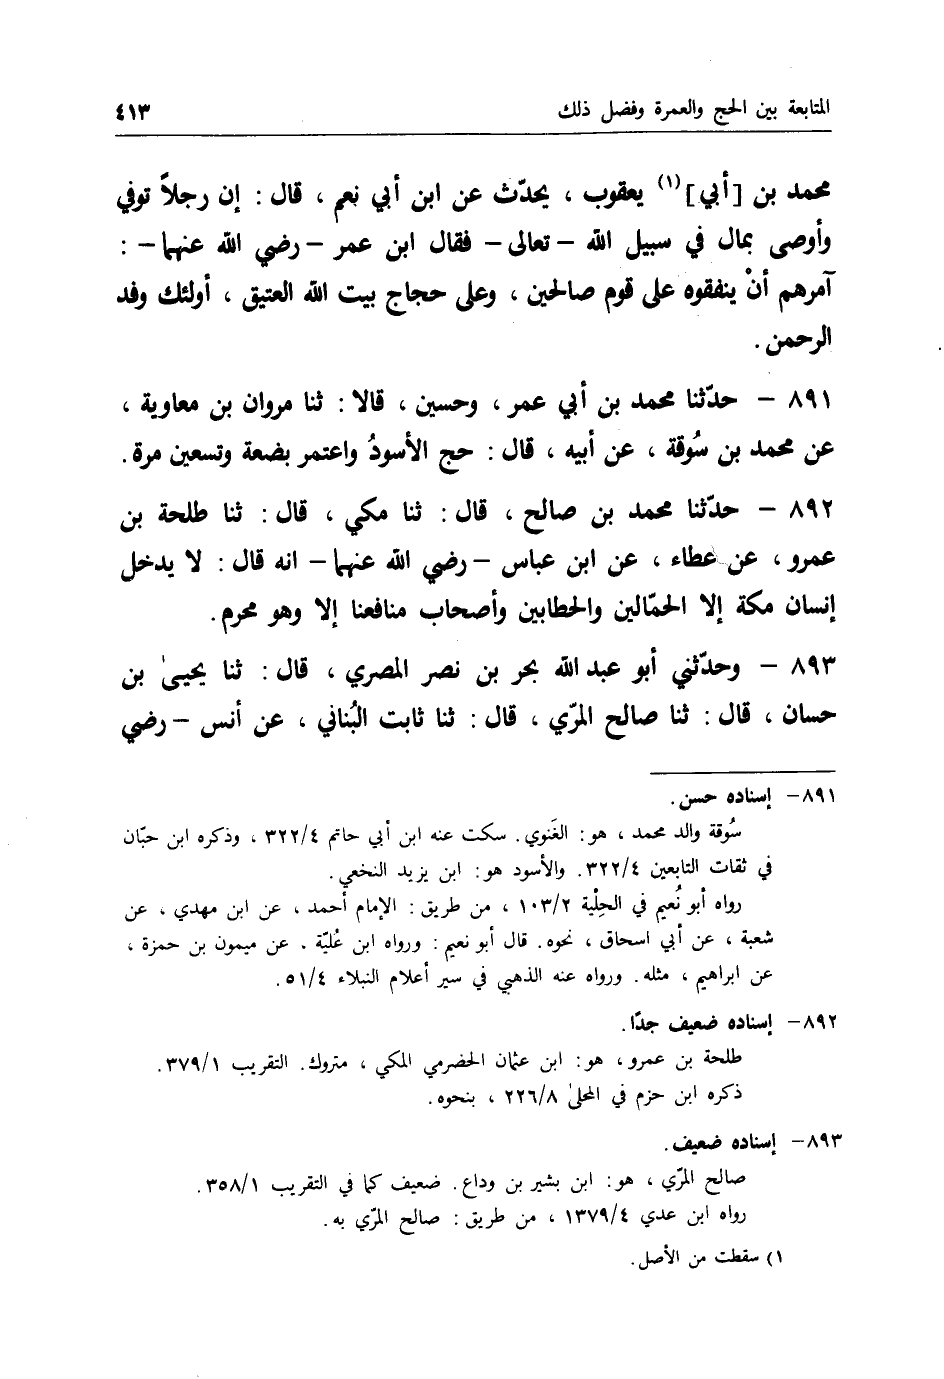 المتابعة بين الحج والعمرة وفضل ذلك ٤١٣
محمد بن [أبي](١) يعقوب ، يحدّث عن ابن أبي نعم ، قال : إن رجلاً توفي
وأوصى بمال في سبيل الله – تعالى – فقال ابن عمر – رضي الله عنهما – :
آمرهم أنْ ينفقوه على قوم صالحين ، وعلى حجاج بيت الله العتيق ، أولئك وفد
الرحمن .
٨٩١ – حدّثنا محمد بن أبي عمر ، وحسين ، قالا : ثنا مروان بن معاوية ،
عن محمد بن سُوقة ، عن أبيه ، قال : حج الأسودُ واعتمر بضعة وتسعين مرة .
٨٩٢ – حدّثنا محمد بن صالح ، قال : ثنا مكي ، قال : ثنا طلحة بن
عمرو ، عن عطاء ، عن ابن عباس – رضي الله عنهما – انه قال : لا يدخل
إنسان مكة إلا الحمّالين والحطابين وأصحاب منافعنا إلا وهو محرم .
٨٩٣ – وحدّثني أبو عبد الله بحر بن نصر المصري ، قال : ثنا يحيىٰ بن
حسان ، قال : ثنا صالح المرّي ، قال : ثنا ثابت البُناني ، عن أنس – رضي
٨٩١– إسناده حسن .
سُوقة والد محمد ، هو : الغَنوي . سكت عنه ابن أبي حاتم ٣٢٢/٤ ، وذكره ابن حبّان
في ثقات التابعين ٣٢٢/٤ . والأسود هو : ابن يزيد النخعي .
رواه أبو نُعيم في الحِلْية ١٠٣/٢ ، من طريق : الإمام أحمد ، عن ابن مهدي ، عن
شعبة ، عن أبي اسحاق ، نحوه . قال أبو نعيم : ورواه ابن عُليّة . عن ميمون بن حمزة ،
عن ابراهيم ، مثله . ورواه عنه الذهبي في سير أعلام النبلاء ٥١/٤ .
٨٩٢– إسناده ضعيف جدًا .
طلحة بن عمرو ، هو : ابن عثمان الحضرمي المكي ، متروك . التقريب ٣٧٩/١ .
ذكره ابن حزم في المحلىٰ ٢٢٦/٨ ، بنحوه .
٨٩٣– إسناده ضعيف .
صالح المرّي ، هو : ابن بشير بن وداع . ضعيف كما في التقريب ٣٥٨/١ .
رواه ابن عدي ١٣٧٩/٤ ، من طريق : صالح المرّي به .
١) سقطت من الأصل .